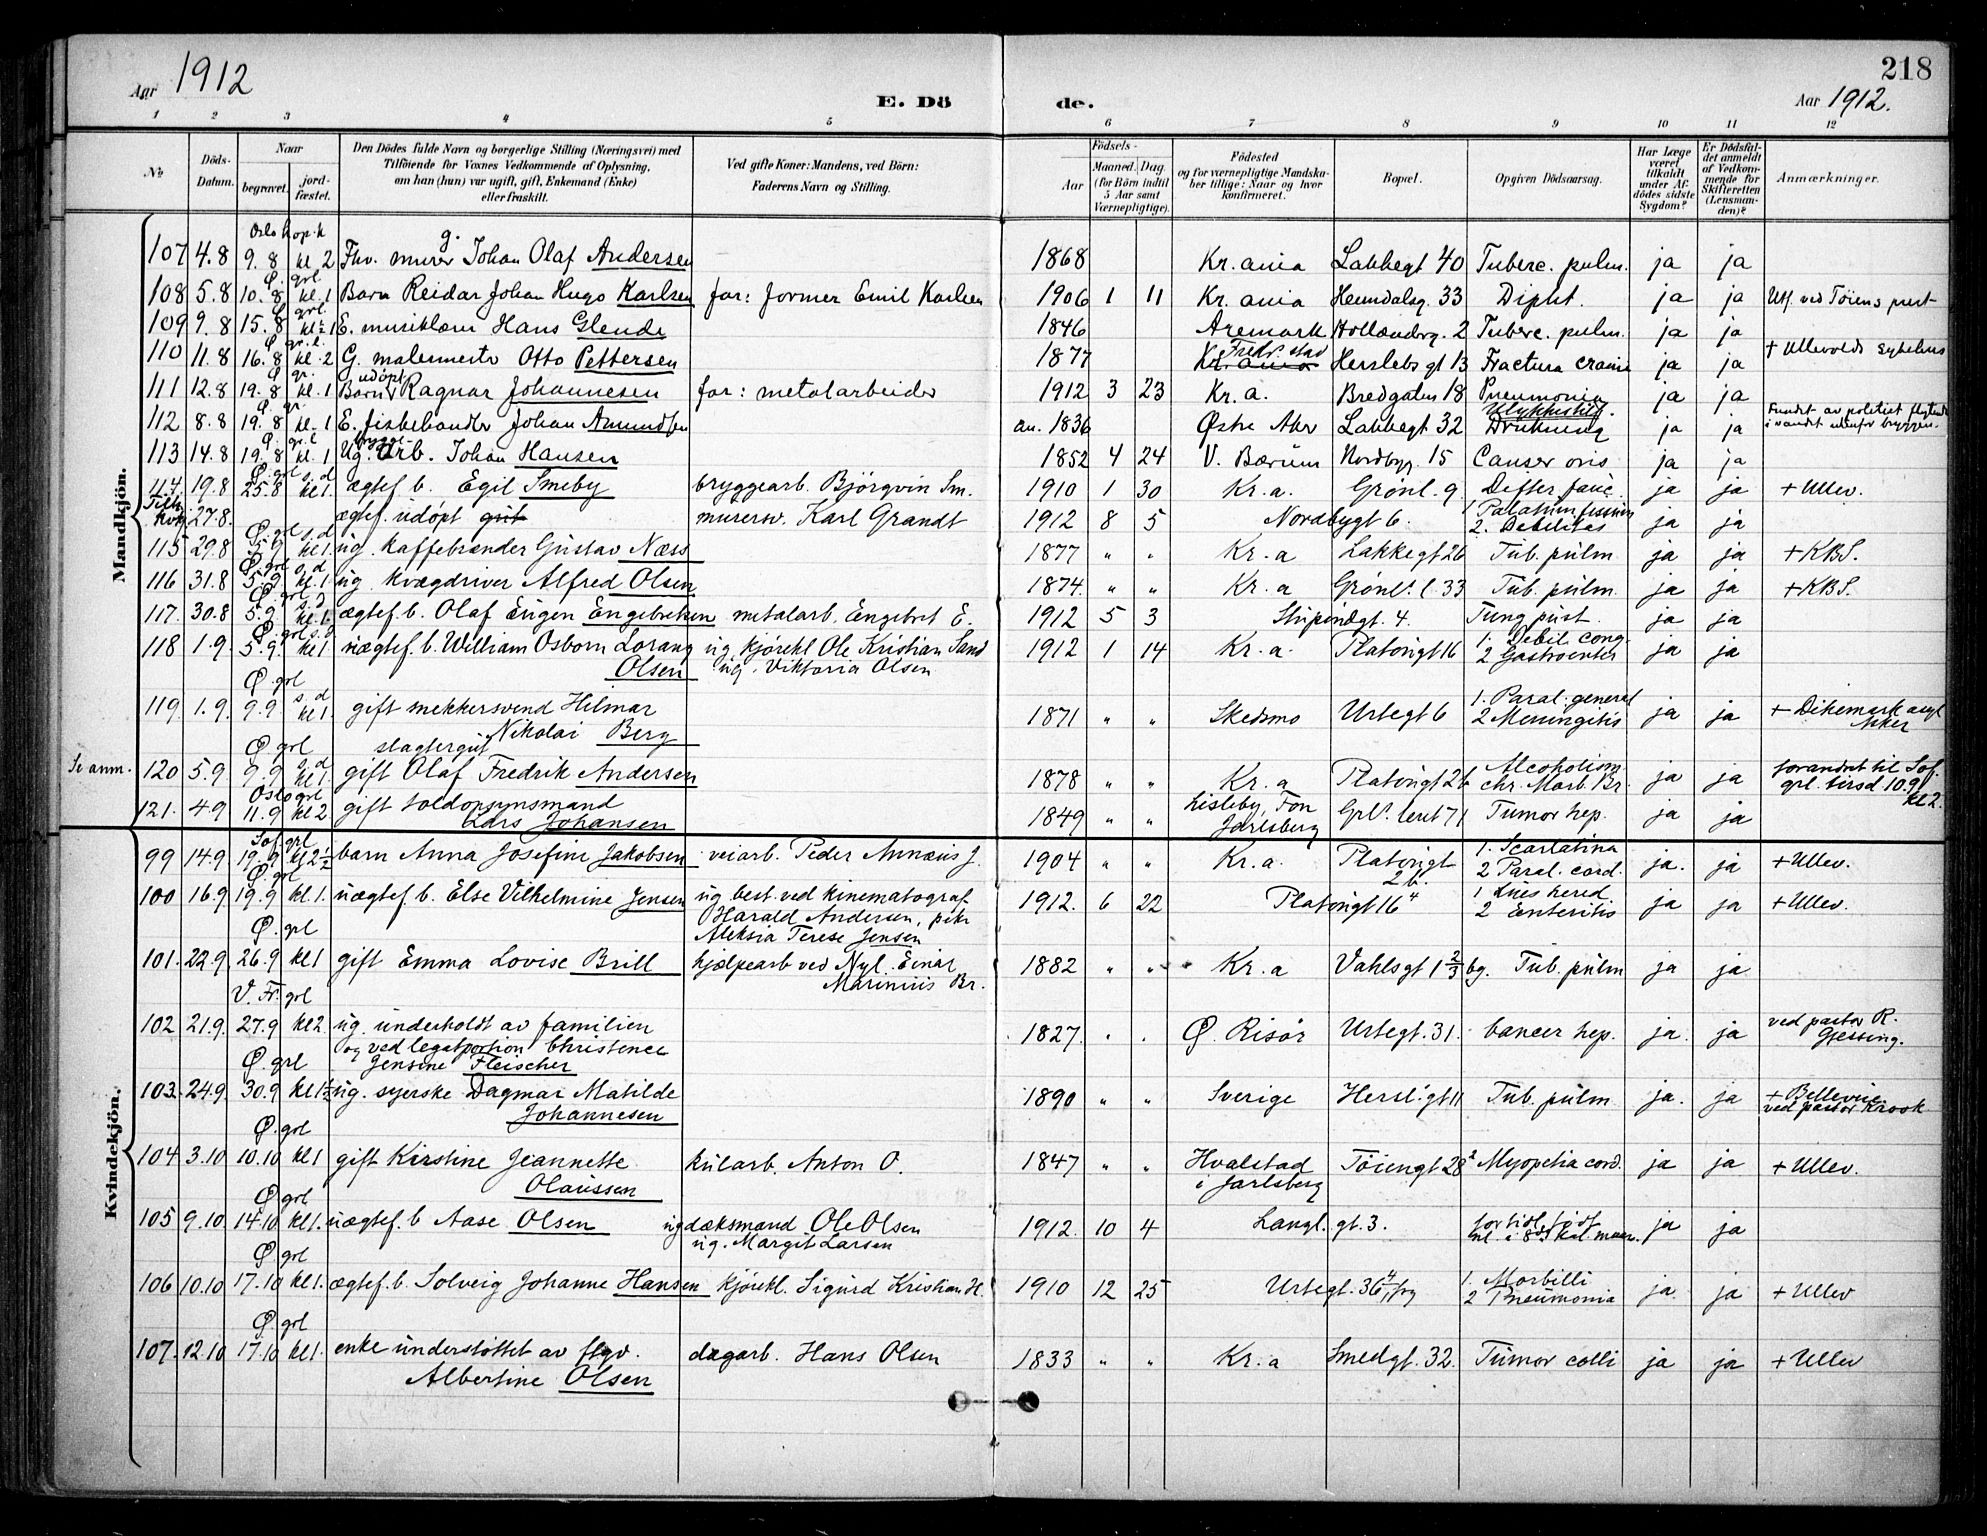 Aar 1912
E. Dö de.
218
Aar 1912.
1 2 3 4 5 6 7 8 9 10 11 12
No
Döds-Datum.
Naar
begravet. jordfæstet.
Den Dödes fulde Navn og borgerlige Stilling (Næringsvei) med
Tilföiende for Voxnes Vedkommende af Oplysning,
om han (hun) var ugift, gift, Enkemand (Enke)
eller fraskilt.
Ved gifte Koner: Mandens, ved Börn:
Faderens Navn og Stilling.
Födsels-
Aar Maaned. Dag.
(for Börn indtil
5 Aar samt
Værnepligtige).
Födested
og for værnepligtige Mandskaber tillige: Naar og hvor
konfirmeret.
Bopæl.
Opgiven Dödsaarsag.
Har Læge været tilkaldt under Afdödes sidste Sygdom?
Er Dödsfaldet anmeldt af Vedkommende for Skifteretten (Lensmanden)?
Anmærkninger.
Mandkjön.
Oslo kop. k
107 4.8 9.8 kl 2 Fhv. murer g. Johan Olaf Andersen 1868 Kr.ania Lakkegt 40 Tuberc. pulm. ja ja
Ø. grl.
108 5.8 10.8 kl. 1 Barn Reidar Johan Hugo Karlsen far: former Emil Karlsen 1906 1 11 Kr.ania Heimdalsg. 33 Dipht. ja ja Utf. ved Töiens prest
109 9.8 15.8 kl ½ 1 E. musiklærer Hans Glende 1846 Aremark Hollenderg. 2 Tuberc. pulm. ja ja
110 11.8 16.8 kl. 2 G. malermester Otto Pettersen 1877 Kr.ania Fredr.stad Herslebs gt 13 Fractura cranii ja ja + Ullevolds sykehus
111 12.8 19.8 kl. 1 Barn udöpt Ragnar Johannesen far: metalarbeider 1912 3 23 Kr.a. Bredgaten 18 Pneumonia ja ja
112 8.8 19.8 kl. 1 E. fiskehandler Johan Amundsen an. 1836 Østre Aker Lakkegt 32 Drukning Ulykkestilf. ja ja Fundet av politiet flytende
i vandet utenfor bryggen.
113 14.8 19.8 kl. 1 Ug. brygge Arb. Johan Hansen 1852 4 24 V. Bærum Nordbyg. 15 Canser oris ja ja
114 19.8 25.8 kl 1. ægtef. b. Egil Smeby bryggearb. Björgvin Sm. 1910 1 30 Kr.a. Grönl. 9 Difter fauc. ja ja + Ullev.
27.8. ægtef. udöpt gut murersv. Karl Grandt 1912 8 5 Nordbygt 6. 1 Palatum fissum
2. Debilitas ja ja
115 29.8 kl 1. ug. kaffebrænder Gustav Næss 1877 " " Kr.a Lakkegt 26 Tub. pulm. ja ja + KBS.
116 31.8 5.9 kl. 1 ug. kvægdriver Alfred Olsen 1874. " " Kr.a Grönl. l. 33 Tub. pulm ja ja + KBS.
117. 30.8 5.9 kl. 1 ægtef. b. Olaf Eugen Engebretsen metalarb. Engebret E. 1912 5 3 Stupendgt. 4. Tung pust. ja ja
118 1.9. 5.9 kl 1 uægtef. b. William Osborn Lorang
Olsen ug. kjörekl Ole Kristian Sand
ug. Viktoria Olsen 1912 1 14 Kr.a. Platöugt 16 1. Debil. cong.
2 Gastroenter ja ja
Ø. grl
119. 1.9. 9.9 s. d kl 1. gift snekkersvend Hilmar
Nikolai Berg 1871 " " Skedsmo Urtegt 6 1. Paral. general
2 Meningitis ja ja + Dikemark asyl
Aker
Ø. grl
Se anm. 120 5.9. 9.9 s. d kl 1 slagtergut
gift Olaf Fredrik Andersen 1878 " " Kr.a Platöugt 26 Alcoholism.
chr. Morb. Br. ja ja forandret til Sof.
grl. tirsd 10.9
kl 2.
Oslo grl
121. 4.9 11.9 kl 2 gift toldopsynsmand
Lars Johansen 1849 " " Lisleby, Fon
Jarlsberg Grl. leret 71 Tumor hep. ja ja
Kvindekjön.
Sof. grl
99 14.9 19.9 kl 2½ barn Anna Josefine Jakobsen veiarb. Peder Annæus J. 1904 " " Kr.a. Platöugt
2b. 1. Scarlatina
2 Paral. cord. ja. ja + Ullev.
Ø. grl
100 16.9 19.9 kl. 1. uægtef. b. Else Vilhelmine Jensen ug. best. ved kinematograf
Harald Andersen, pike
Aleksia Terese Jensen 1912. 6 22 Platöugt 16 1 Lues hered
2 Enteritis ja ja + Ullev.
Ø. grl
101. 22.9. 26.9 kl 1 gift Emma Lovise Brill hjælpearb ved Nyl. Einar
Marinius Br. 1882 " " Kr.a Vahlsgt 1 ⅔ bg. Tub. pulm ja ja
V. Fr. grl
102 21.9. 27.9 kl 2. ug. underholdt av familien
og ved legatportion Christence
Jensine Fleischer 1827. Ø. Risör Urtegt. 31. cancer hep. ja. ja ved pastor R.
Gjessing.
Ø. grl
103. 24.9. 30.9 kl 1½ ug. syerske Dagmar Matilde
Johannesen 1890 " " Sverige Hersl. gt 11 Tub. pulm. ja. ja + Bellevue.
ved pastor Krook
Ø. grl
104 3.10 10.10 kl 1 gift Kirstine Jeannette
Olaussen kularb. Anton O. 1847 " " Hvalstad
i Jarlsberg Töiengt 28 Myopetia cord. ja ja + Ullev.
Ø grl
105 9.10 14.10 kl 1. uægtef. b Aase Olsen ug dæksmand Ole Olsen
ug. Margit Larsen 1912. 10 4 Langl. gt. 3. for tidl. födt ja ja
Ø grl
106 10.10 17.10 kl 1. ægtef. b. Solveig Johanne Hansen kjörekl. Sigurd Kristian H. 1910 12 25 Urtegt. 36 1. Morbilli
2 Pneumonia ja. ja + Ullev
Ø. grl
107. 12.10 17.10 kl 1. enke understöttet av ftgv.
Albertine Olsen dagarb. Hans Olsen 1833 " " Kr.a Smedgt. 32. Tumor colli ja ja + Ullev